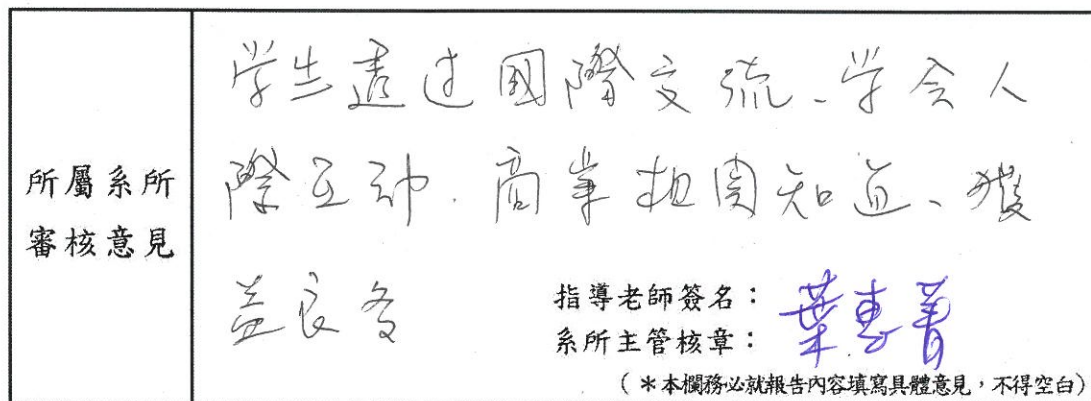 所屬系所
審核意見
学生透过國際交流、学会人
際互动、商業相関知道、獲
益良多
指導老師簽名：葉惠菁
系所主管核章：
（＊本欄務必就報告內容填寫具體意見，不得空白）